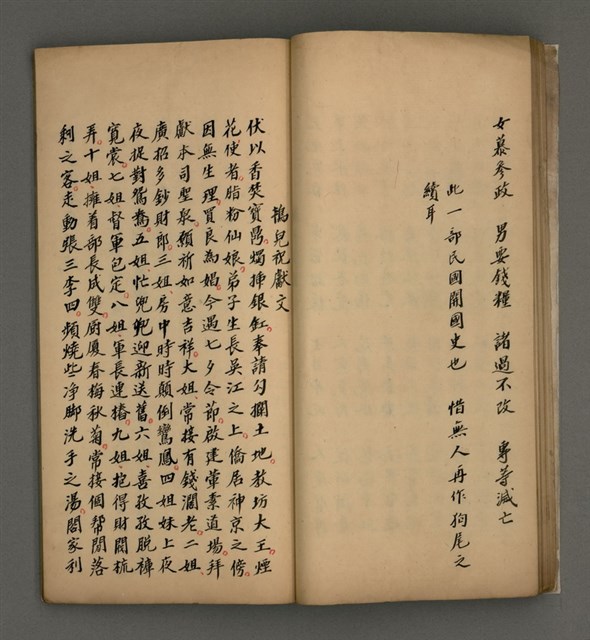 女慕參政　男要錢糧　諸過不改　專等滅亡
此一部民國開國史也　惜無人再作狗尾之
續耳
鴇兒祝獻文
伏以香焚寶鴿燭揷銀缸奉請勾攔土地教坊大王煙
花使者脂粉仙娘弟子生長吳江之上僑居神京之傍
因無生理買良為娼今遇七夕令節啟建葷素道場拜
獻本司聖衆願祈如意吉祥大姐常接有錢濶老二姐
廣招多鈔財郎三姐房中時時顛倒鸞鳳四姐妹上夜
夜捉對鴛鴦五姐忙兜兜迎新送舊六姐喜孜孜脫褲
寬裳七姐督軍包定八姐軍長連樁九姐抱得財閥梳
弄十姐擁着部長成雙厨厦春梅秋菊常接個幫閒落
剩之客走動張三李四頻燒些净脚洗手之湯閤家利